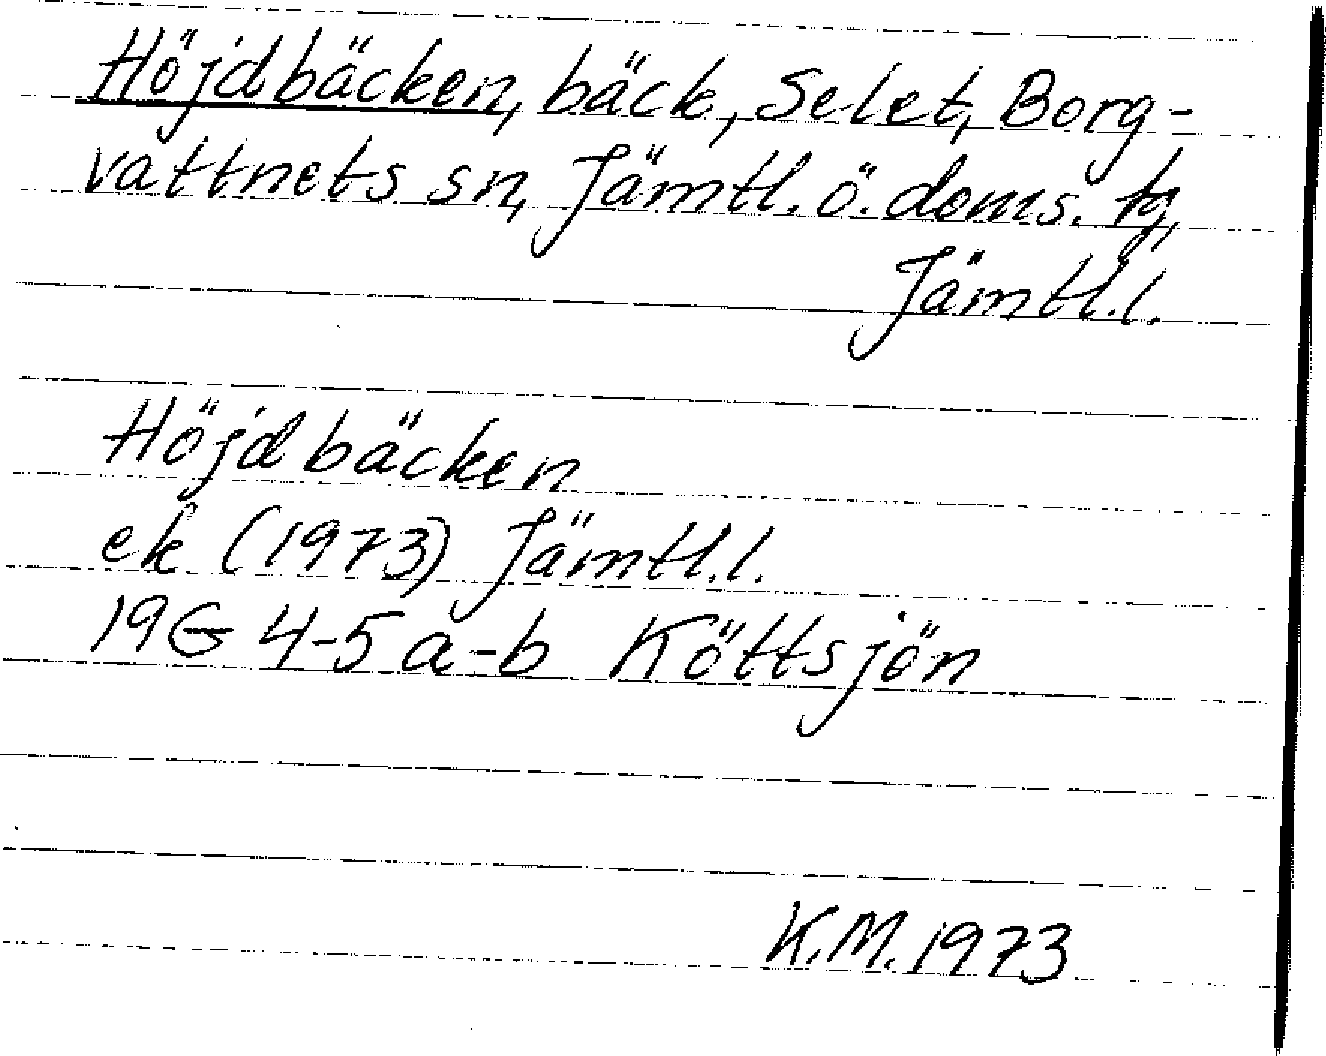 Höjdbäcken, bäck, Selet, Borg-
vattnets sn, Jämtl. ö. doms. tg,
Jämtl.l.
Höjdbäcken
ek (1973) Jämtl.l.
19G 4-5 a-b Köttsjön
K.M. 1973